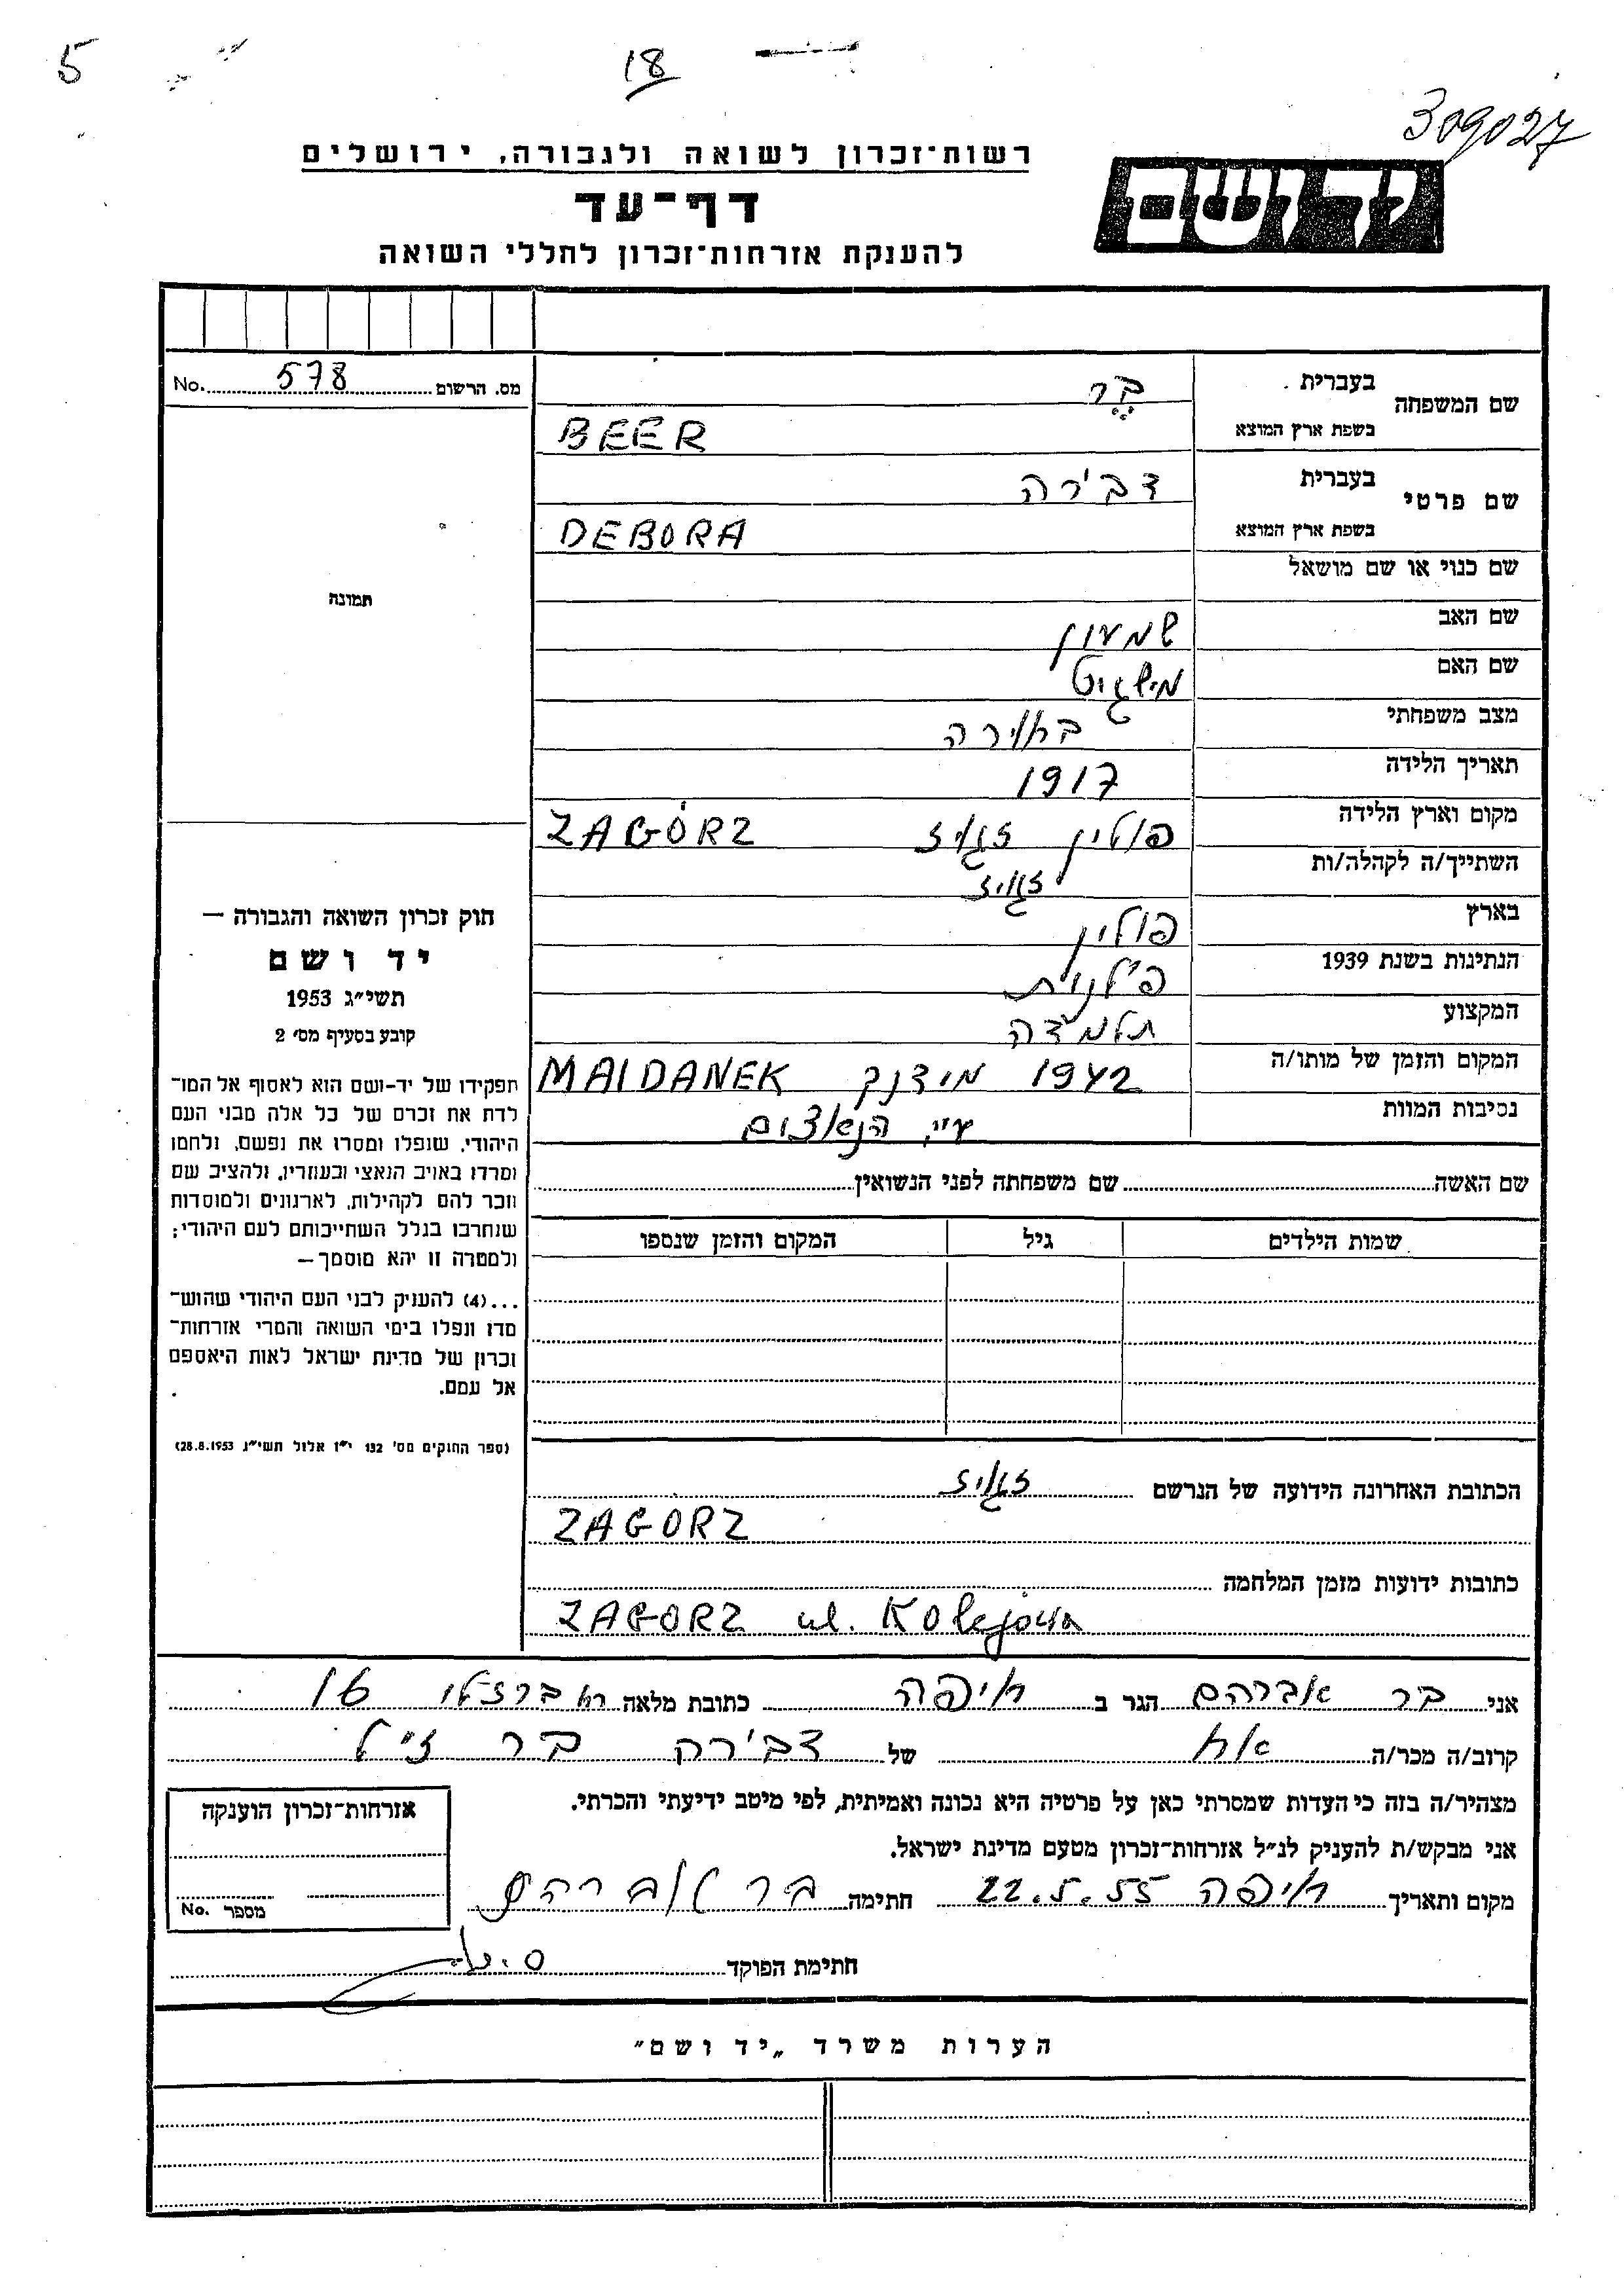 5
18
309027
רשות־זכרון לשואה ולגבורה, ירושלים
דף־עד
להענקת אזרחות־זכרון לחללי השואה
ידושם
מס. הרשום 578 No.
שם המשפחה
בעברית בר
בשפת ארץ המוצא BEER
שם פרטי
בעברית דבירה
בשפת ארץ המוצא DEBORA
שם כנוי או שם מושאל
תמונה
שם האב שמעון
שם האם
מצב משפחתי
תאריך הלידה 1917
מקום וארץ הלידה פולין ZAGÓRZ
השתייך/ה לקהלה/ות
בארץ פולין
הנתינות בשנת 1939 פולנית
המקצוע תלמידה
המקום והזמן של מותו/ה 1942 מידנק MAIDANEK
נסיבות המוות ע״י הנאצים
שם האשה שם משפחתה לפני הנשואין
שמות הילדים גיל המקום והזמן שנספו
חוק זכרון השואה והגבורה —
יד ושם
תשי״ג 1953
קובע בסעיף מס׳ 2
תפקידו של יד-ושם הוא לאסוף אל המו־
לדת את זכרם של כל אלה מבני העם
היהודי, שנפלו ומסרו את נפשם, נלחמו
ומרדו באויב הנאצי ובעוזריו, ולהציב שם
וזכר להם לקהילות, לארגונים ולמוסדות
שנחרבו בגלל השתייכותם לעם היהודי;
ולמטרה זו יהא מוסמך —
...(4) להעניק לבני העם היהודי שהוש־
מדו ונפלו בימי השואה והמרי אזרחות־
זכרון של מדינת ישראל לאות היאספם
אל עמם.
(ספר החוקים מס׳ 132 י״ז אלול תשי״ג 28.8.1953)
הכתובת האחרונה הידועה של הנרשם
ZAGORZ
כתובות ידועות מזמן המלחמה
ZAGORZ ul. Kolejowa
אני בר אברהם הגר ב חיפה כתובת מלאה רח ברזילי 16
קרוב/ה מכר/ה אח של דבירה בר ז״ל
מצהיר/ה בזה כי העדות שמסרתי כאן על פרטיה היא נכונה ואמיתית, לפי מיטב ידיעתי והכרתי.
אני מבקש/ת להעניק לנ״ל אזרחות־זכרון מטעם מדינת ישראל.
מקום ותאריך חיפה 22.5.55 חתימה בר אברהם
חתימת הפוקד
אזרחות־זכרון הוענקה
מספר No.
הערות משרד „יד ושם״